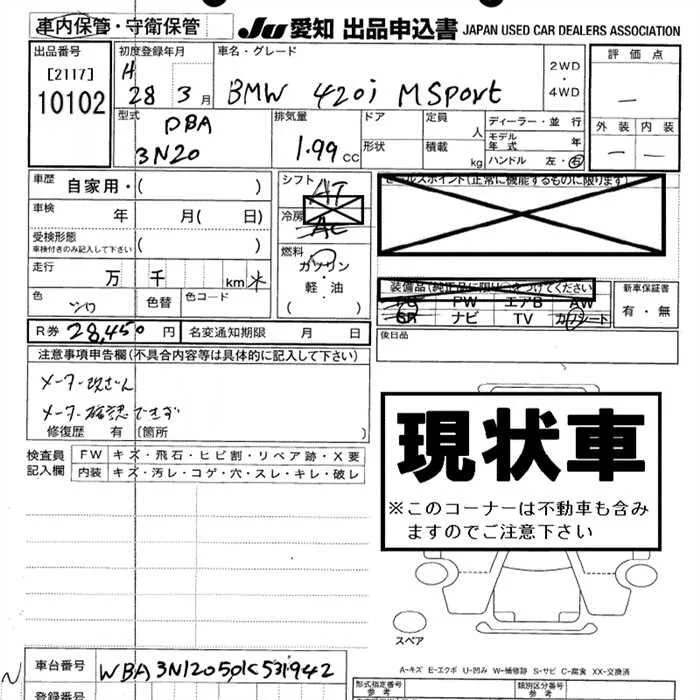 車内保管・守衛保管
JU 愛知 出品申込書 JAPAN USED CAR DEALERS ASSOCIATION
出品番号
[2117]
10102
初度登録年月
H 28 3月
車名・グレード
BMW 420i MSport
2WD
・
4WD
評価点
—
外装 内装
— —
型式
DBA
3N20
排気量
1.99 CC
ドア
形状
定員 人
積載 kg
ディーラー・並行
モデル年式 年
ハンドル 左・右
車歴 自家用・( )
車検 年 月( 日)
受検形態
車検付きのみ記入して下さい ( )
走行 万 千 km
色 シロ 色替 色コード
シフト AT
冷房 AC
燃料
ガソリン
・
軽・油
( )
セールスポイント(正常に機能するものに限ります)
装備品(純正品に限り つきつけてください)
PS PW エアB AW
SR ナビ TV カワシート
新車保証書
有・無
R券 28,450 円 名変通知期限 月 日
後日品
注意事項申告欄(不具合内容等は具体的に記入して下さい)
メーター改ざん
メーター確認できず
修復歴 有 [箇所 ]
現状車
※このコーナーは不動車も含み
ますのでご注意下さい
検査員 FW キズ・飛石・ヒビ割・リペア跡・X要
記入欄 内装 キズ・汚レ・コゲ・穴・スレ・キレ・破レ
スペア
A-キズ E-エクボ U-凹み W-補修跡 S-サビ C-腐食 XX-交換済
車台番号 WBA3N12050K531942
登録番号
型式指定番号
参考
類別区分番号
参考